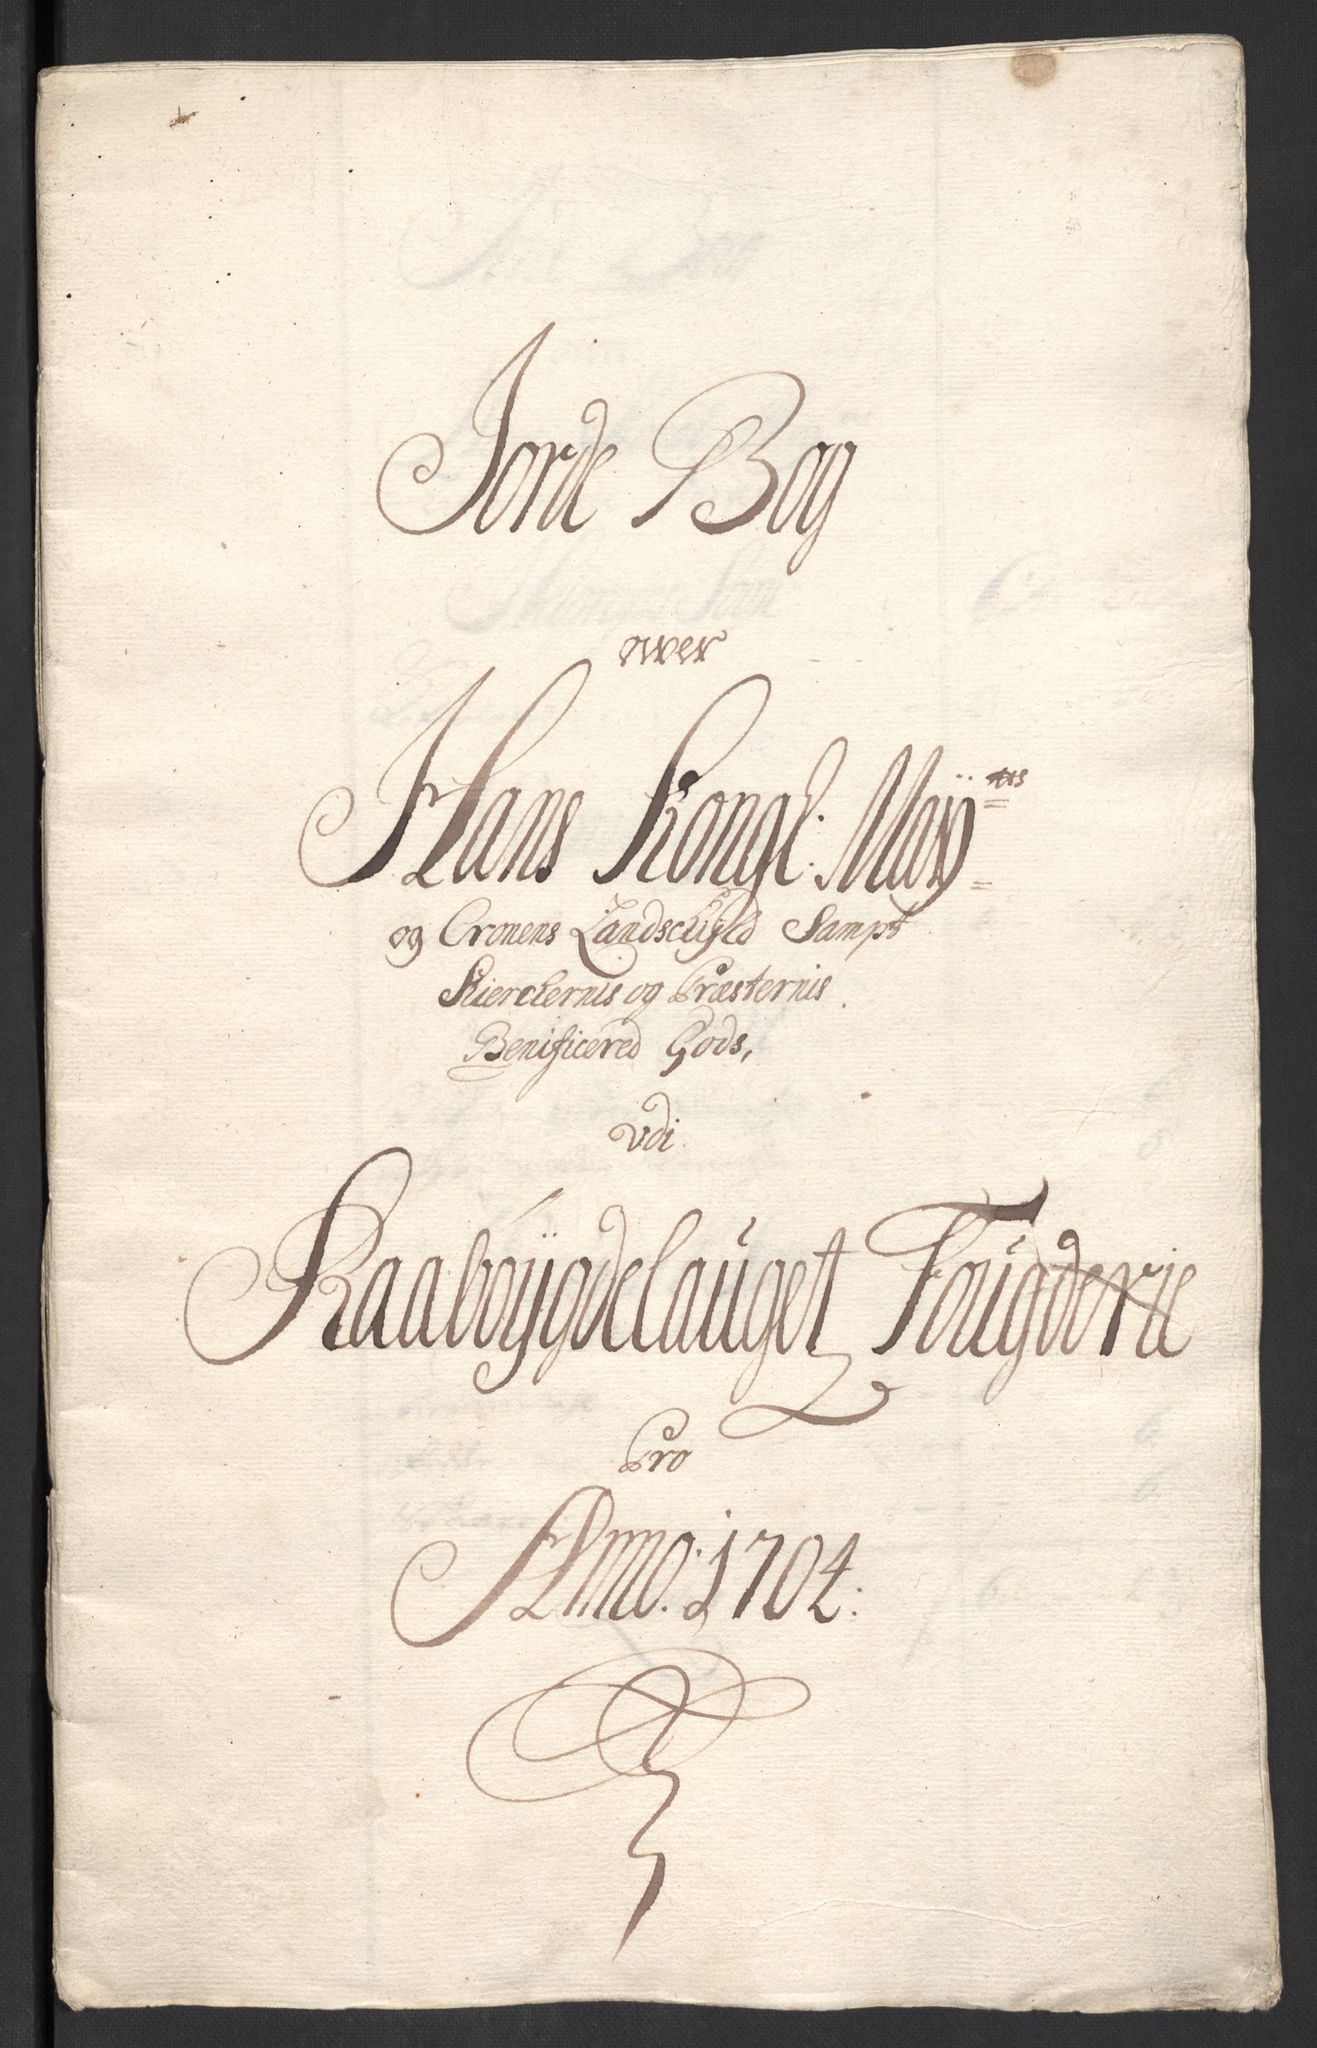 Jorde Bog
over
Hans Kongl: Maÿ:tis
og Cronens Landschÿld Sampt
Kierckernis og Præsternis
Benificered Gods,
vdi
Raaboÿgdelauget Fougderie
Pro
Anno: 1704: